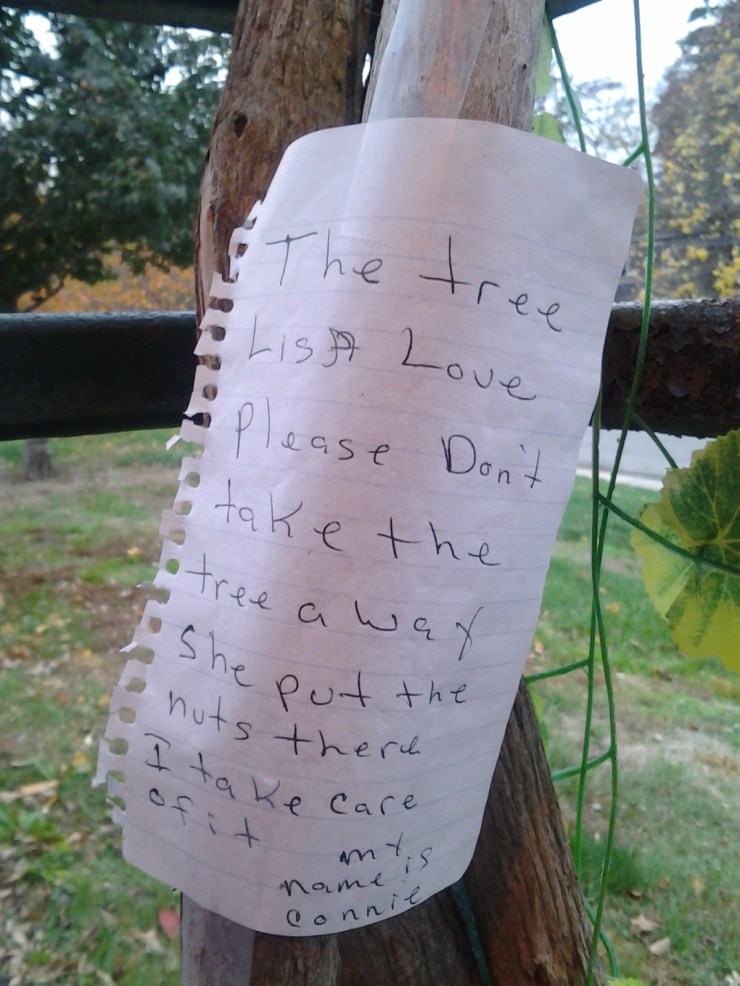 The tree
LisA Love
Please Don't
take the
tree a way
She put the
nuts there
I take care
of it my
name is
Connie